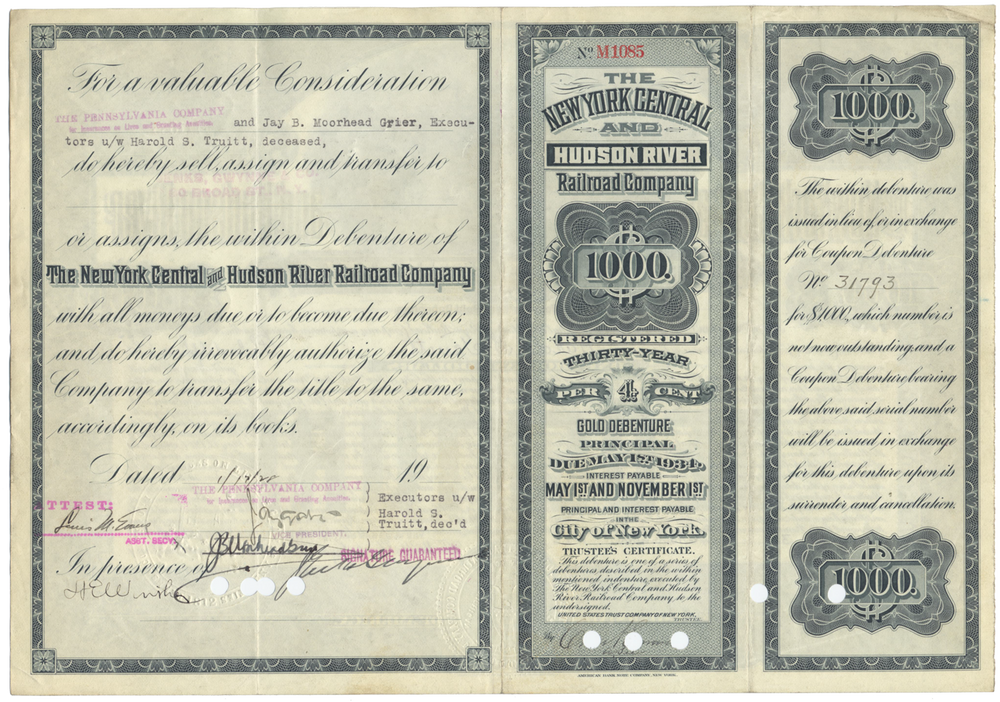 For a valuable Consideration
THE PENNSYLVANIA COMPANY
for Insurances on Lives and Granting Annuities
and Jay B. Moorhead Grier, Execu-
tors u/w Harold S. Truitt, deceased,
do hereby sell, assign and transfer to
BROAD ST., N. Y.
or assigns, the within Debenture of
The New York Central and Hudson River Railroad Company
with all moneys due, or to become due thereon;
and do hereby irrevocably authorize the said
Company to transfer the title to the same,
accordingly, on its books.
Dated 19
THE PENNSYLVANIA COMPANY
for Insurances on Lives and Granting Annuities
TTEST:
Executors u/w
Harold S.
Truitt, dec'd
VICE PRESIDENT.
ASST. SECY.
SIGNATURE GUARANTEED
In presence of
No. M1085
THE
NEW YORK CENTRAL
AND
HUDSON RIVER
Railroad Company
1000.
REGISTERED
THIRTY-YEAR
4 PER CENT
GOLD DEBENTURE
PRINCIPAL
DUE MAY 1ST 1934.
INTEREST PAYABLE
MAY 1ST AND NOVEMBER 1ST
PRINCIPAL AND INTEREST PAYABLE
IN THE
City of New York.
TRUSTEE'S CERTIFICATE.
This debenture is one of a series of
debentures, described in the within
mentioned indenture, executed by
The New York Central and Hudson
River Railroad Company to the
undersigned.
UNITED STATES TRUST COMPANY OF NEW YORK,
TRUSTEE.
By
AMERICAN BANK NOTE COMPANY, NEW YORK.
1000.
The within debenture was
issued in lieu of, or in exchange
for Coupon Debenture
No. 31793
for $1000, which number is
not now outstanding, and a
Coupon Debenture bearing
the above said serial number
will be issued in exchange
for this debenture upon its
surrender and cancellation.
1000.